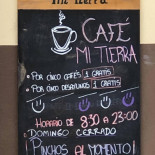 mi tierra
CAFÉ
MI TIERRA
• POR CINCO CAFÉS 1 GRATIS
• POR CINCO DESAYUNOS 1 GRATIS
HORARIO DE 8:30 A 23:00
• DOMINGO CERRADO
PINCHOS AL MOMENTO!